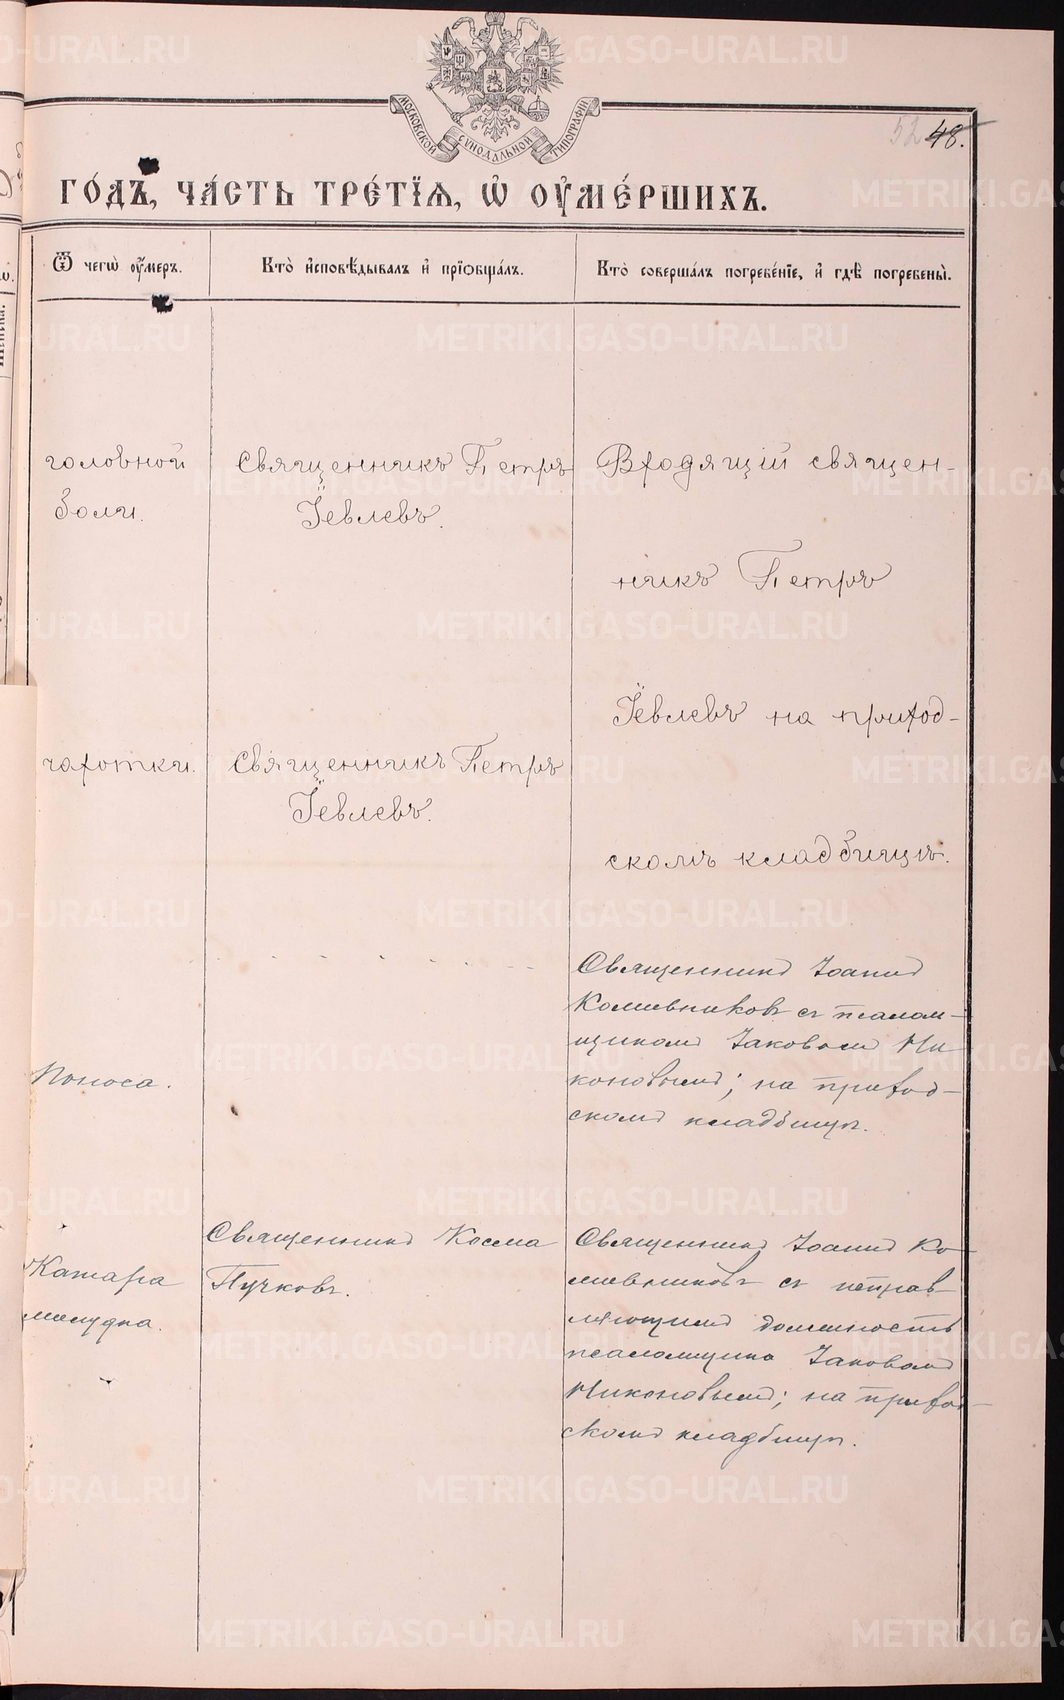 МОСКОВСКОЙ СѴНОДАЛЬНОЙ ТИПОГРАФІИ
52 48.
ГО́ДЪ, ЧА́СТЬ ТРЕ́ТЇѦ, Ѡ҆ ОУ҆МЕ́РШИХЪ.
Ѿ чегѡ̀ оу҆́меръ.
Кто̀ и҆сповѣ́дывалъ и҆ прїѻбща́лъ.
Кто̀ соверша́лъ погребе́нїе, и҆ гдѣ̀ погребены̀.
головной
боли.
Священникъ Петръ
Іевлевъ.
Входящій священ-
никъ Петръ
Іевлевъ на приход-
скомъ кладбищѣ.
чахотки.
Священникъ Петръ
Іевлевъ.
Поноса.
Священникъ Іоаннъ
Кожевниковъ съ псалом-
щикомъ Іаковомъ Ни-
коновымъ; на приход-
скомъ кладбищѣ.
Катара
желудка.
Священникъ Косма
Пучковъ.
Священникъ Іоаннъ Ко-
жевниковъ съ исправ-
ляющимъ должность
псаломщика Іаковомъ
Никоновымъ; на приход-
скомъ кладбищѣ.
METRIKI.GASO-URAL.RU